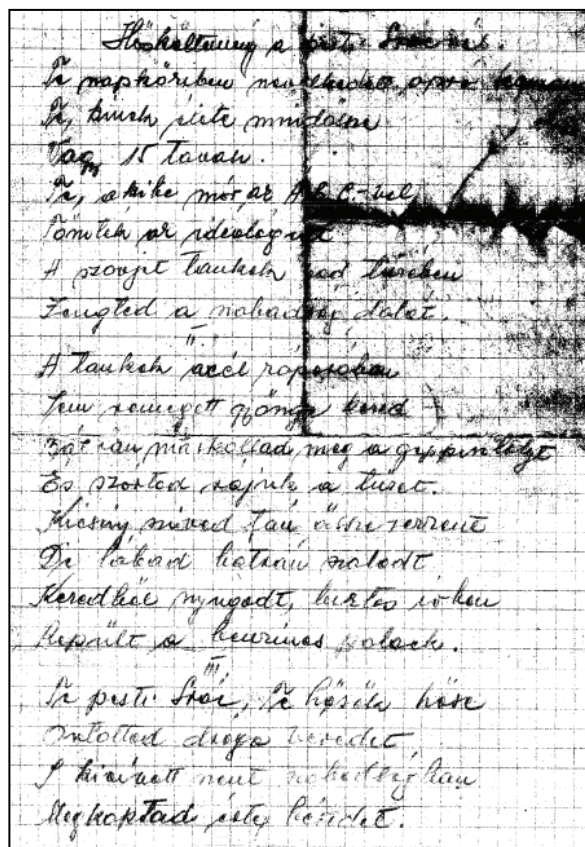 Hősköltemény a pesti Srácról.
Te napköziben nevelkedett, apró
Te, kinek élete mindössze
Vagy 15 tavasz.
Te, akibe már az A.B.C.-vel
Tömték az ideológiát
A szovjet tankok vad tüzében
Zengted a szabadság dalát.
II.
A tankok acél záporában
Nem remegett gyönge kezed
Bátran markoltad meg a géppisztolyt
És szórtad rájuk a tüzet.
Kicsiny szíved tán össze rezzent
De lábad bátran szaladt
Kezedből nyugodt, biztos ívben
Repült a benzines palack.
III
Te pesti Srác, Te hősök hőse
Ontottad drága véredet,
S kivívott szent szabadságban
Megkaptad béredet.